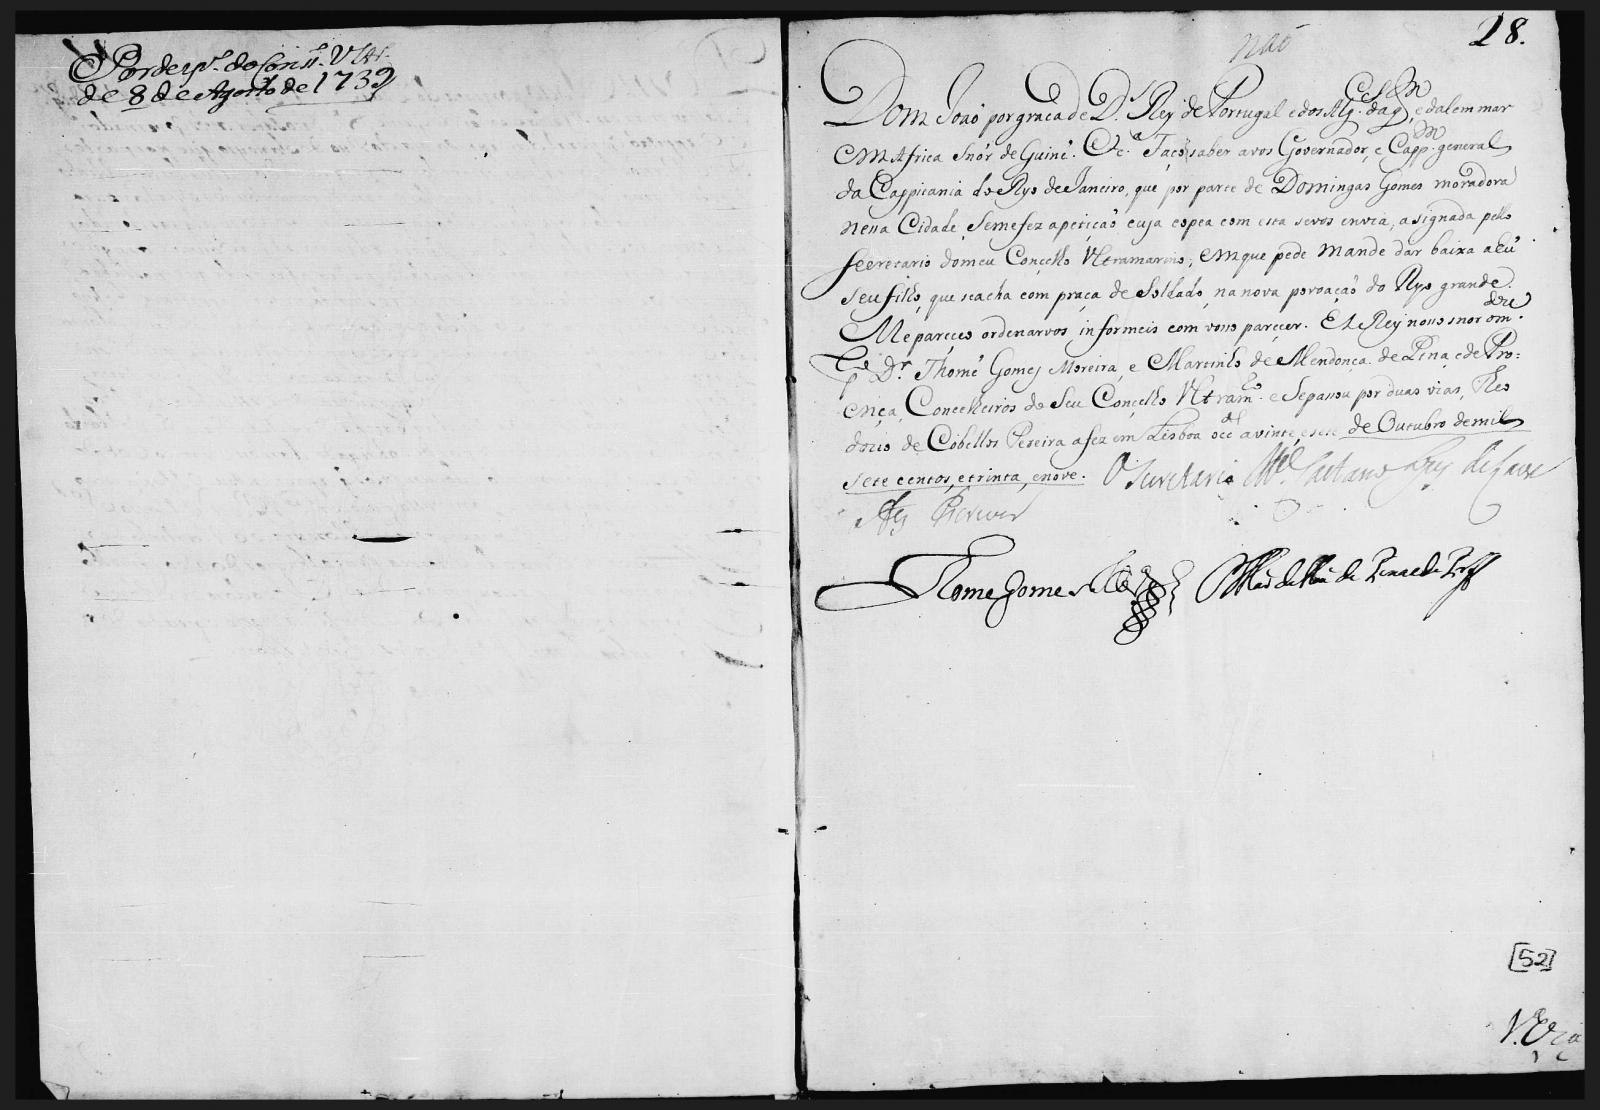 Por desp.º do Cons.º Ultr.
de 8 de Agosto de 1739
28.
não
Dom João por graça de D.s Rey de Portugal e dos Alg. daq, e dalem mar
em Africa Snór de Guiné. &c.ª Faço saber a vos Governador, e Capp.m general
da Cappitania do Ryo de Janeiro, que por parte de Domingas Gomes moradora
nessa Cidade, se me fez a petição cuja copea com esta se vos envia, asignada pello
secretario do meu Concelho Ultramarino, em que pede mande dar baixa a hũ
seu filho, que se acha com praça de Soldado, na nova povoação do Ryo grande.
Me pareceo ordenarvos, informeis com vosso parecer. El Rey nosso snor o m.dou
p.lo D.r Thomé Gomes Moreira, e Martinho de Mendonça de Pina, e de Pro:
ença Concelheiros do Seu Concelho Ultram.º e se passou por duas vias, Theo
dozio de Cobellos Pereira a fez em Lisboa occ.al a vinte, e sete de Outubro de mil
sete centos, e trinta, e nove. O Secretario M.el Caetano Lopes de Lavre
a fes escrever
Thome Gomes Mor.ª Mar.º de M.ça de Pina e de Pr.ça
[52]
1.ª via